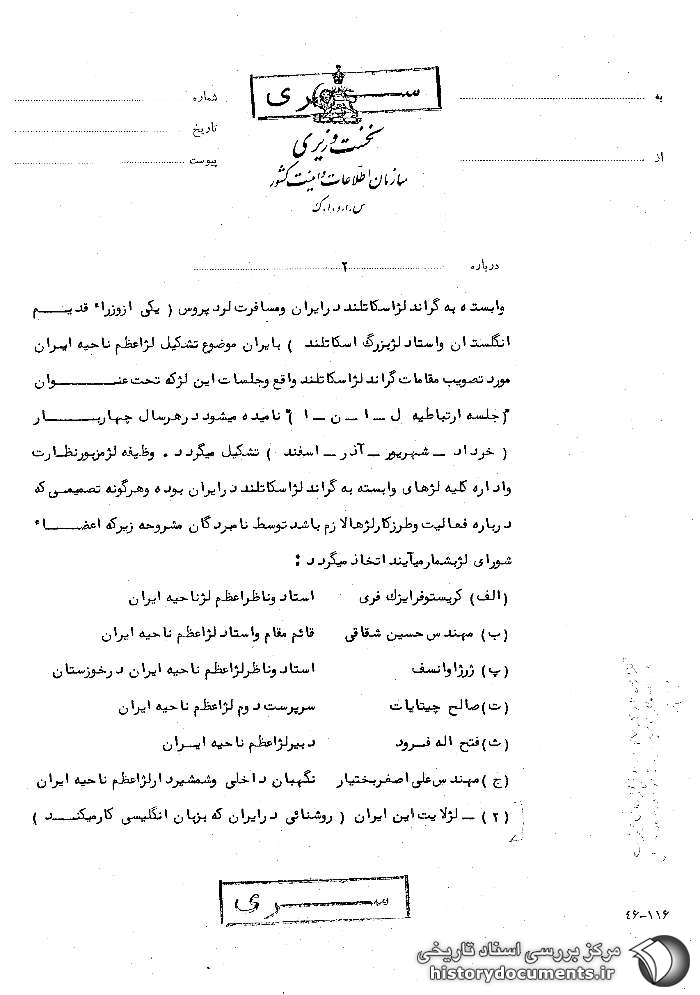 سری
به
شماره
نخست وزیری
تاریخ
سازمان اطلاعات و امنیت کشور
از
پیوست
س.ا.و.ا.ک
درباره ۲
وابسته به گراند لژ اسکاتلند در ایران ومسافرت لرد پروس ( یکی ازوزراء قدیم
انگلستان واستاد لژبزرگ اسکاتلند ) بایران موضوع تشکیل لژاعظم ناحیه ایران
مورد تصویب مقامات گراند لژاسکاتلند واقع وجلسات این لژکه تحت عنوان
"(جلسه ارتباطیه ل ــ ا ــ ن ــ ا )" نامیده میشود درهرسال چهاربار
( خرداد ــ شهریور ــ آذر ــ اسفند ) تشکیل میگردد . وظیفه لژمزبورنظارت
واداره کلیه لژهای وابسته به گراند لژاسکاتلند درایران بوده وهرگونه تصمیمی که
درباره فعالیت وطرزکارلژهالازم باشد توسط نامبردگان مشروحه زیرکه اعضاء
شورای لژبشمارمیآیند اتخاذ میگردد :
(الف) کریستوفرایزك فری استاد وناظراعظم لژناحیه ایران
(ب) مهندس حسین شقاقی قائم مقام واستاد لژاعظم ناحیه ایران
(پ) ژرژاوانسف استاد وناظرلژاعظم ناحیه ایران درخوزستان
(ت) صالح چیتایات سرپرست دوم لژاعظم ناحیه ایران
(ث) فتح اله فرود دبیرلژاعظم ناحیه ایران
(ج) مهندس علی اصغربختیار نگهبان داخلی وشمشیردارلژاعظم ناحیه ایران
(۲) ــ لژلایت این ایران ( روشنائی درایران که بزبان انگلیسی کارمیکند )
سری
۴۶-۱۱۶
مرکز بررسی اسناد تاریخی
historydocuments.ir